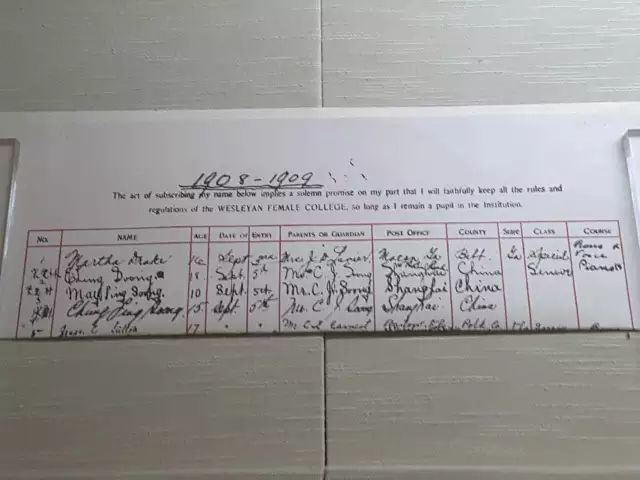 1908-1909
The act of subscribing my name below implies a solemn promise on my part that I will faithfully keep all the rules and
regulations of the WESLEYAN FEMALE COLLEGE, so long as I remain a pupil in the Institution.
No. NAME AGE DATE OF ENTRY PARENTS OR GUARDIAN POST OFFICE COUNTY State CLASS COURSE
1 Martha Drake 16 Sept 2nd Mrs. J. D. Macon Ga Bibb Ga Special Piano &
Voice
Eling Soong 18 Sept. 5th Mr. C. J. Soong Shanghai China Senior Piano
May Ling Soong 10 Sept. 5th Mr. C. J. Soong Shanghai China
Ching Ling Soong 15 Sept. 5th Mr. C. J. Soong Shanghai China
5 17 " " Mr Polk Co.